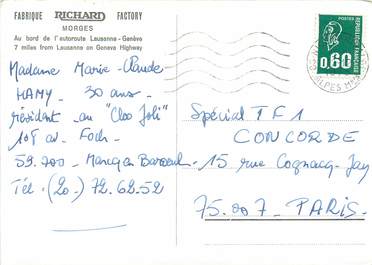 FABRIQUE RICHARD FACTORY
MORGES
Au bord de l'autoroute Lausanne - Genève
7 miles from Lausanne on Geneva Highway
Madame Marie-Claude
HAMY - 30 ans -
résident au "Clos Joli"
108 av. Foch -
59.700 - Marcq en Baroeul -
Tél. (20-) 72.62.52
POSTES
REPUBLIQUE FRANCAISE
0,60
ALPES
Spécial TF1
CONCORDE
15 rue Cognacq-Jay
75.007 - PARIS.